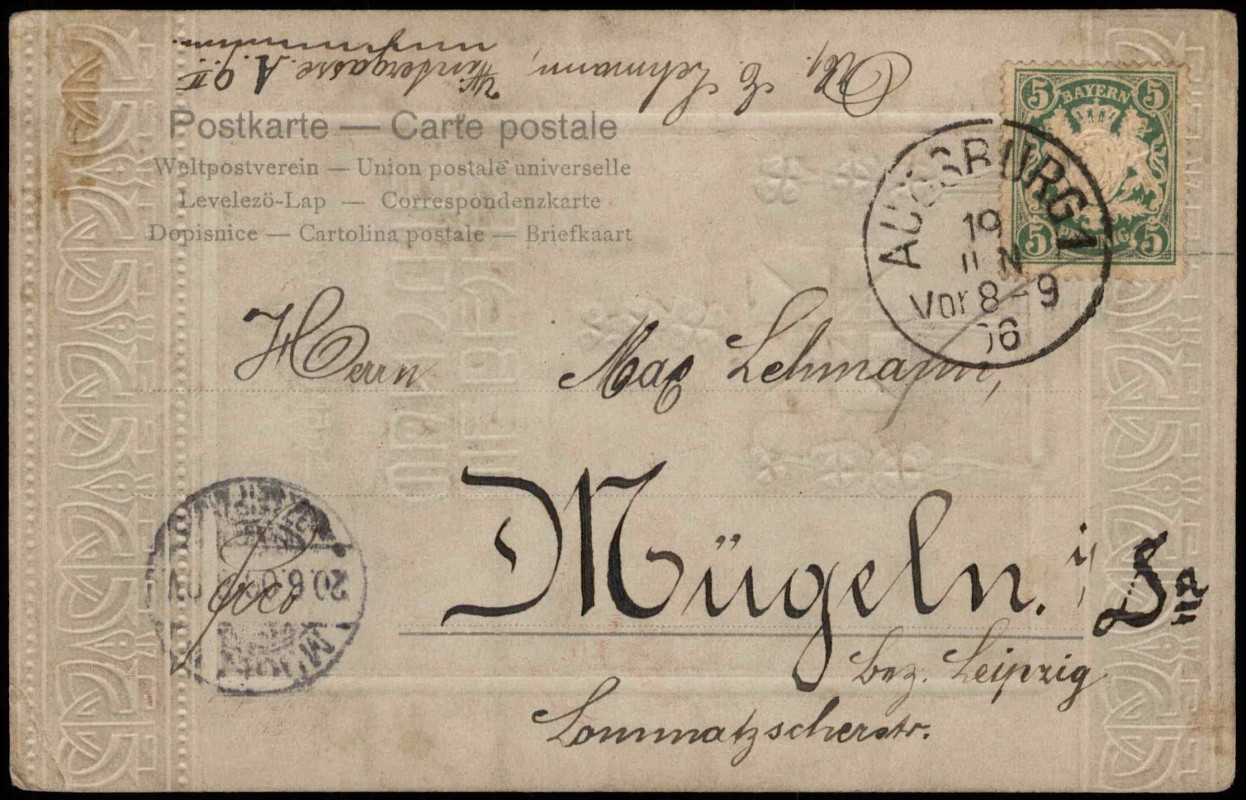 Lehmann,
Wintergasse A. 9. II
Postkarte — Carte postale
Weltpostverein — Union postale universelle
Levelezö-Lap — Correspondenzkarte
Dopisnice — Cartolina postale — Briefkaart
5 BAYERN 5
5 5
AUGSBURG 1
19
JUN
Vor 8-9
06
Herrn Max Lehmann,
Mügeln. i/Sa
bez. Leipzig
Lommatzscherstr.
20.6.